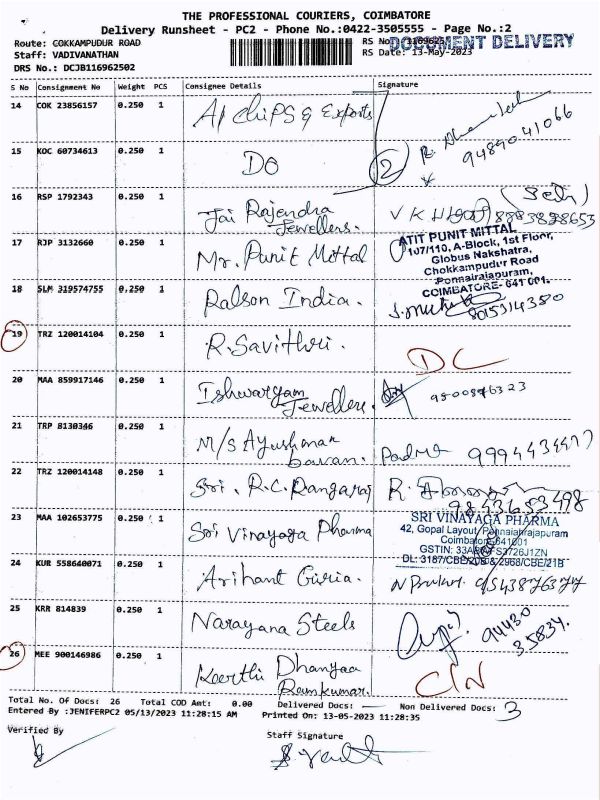 THE PROFESSIONAL COURIERS, COIMBATORE
Delivery Runsheet - PC2 - Phone No.:0422-3505555 - Page No.:2
Route: COKKAMPUDUR ROAD
RS No.:
DOCUMENT DELIVERY
Staff: VADIVANATHAN
RS Date: 13-May-2023
DRS No.: DCJB116962502
S No Consignment No Weight PCS Consignee Details Signature
14 COK 23856157 0.250 1 A1 Chips & Exports
9489041066
15 KOC 60734613 0.250 1 DO
2
16 RSP 1792343 0.250 1 Jai Rajendra
Jewellers.
17 RJP 3132660 0.250 1 Mr. Punit Mittal
ATIT PUNIT MITTAL
107/110, A-Block, 1st Floor,
Globus Nakshatra,
Chokkampudur Road
Ponnairajapuram,
COIMBATORE- 641 001.
18 SLM 319574755 0.250 1 Ralson India.
19 TRZ 120014104 0.250 1 R. Savithri.
DC
20 MAA 859917146 0.250 1 Ishwaryam
Jewellers.
21 TRP 8130346 0.250 1 M/S Ayushman
Padma
22 TRZ 120014148 0.250 1 Sri. R.C. Rangaraj
9843653498
23 MAA 102653775 0.250 1 Sri Vinayaga Pharma
SRI VINAYAGA PHARMA
42, Gopal Layout, Ponnaiahrajapuram
Coimbatore-641001
24 KUR 558640071 0.250 1 Arihant Guiria.
25 KRR 814839 0.250 1 Narayana Steels
94430
35834.
26 MEE 900146986 0.250 1 Keerthi Dhanyaa
Ramkumar.
C/N
Total No. Of Docs: 26 Total COD Amt: 0.00 Delivered Docs: Non Delivered Docs: 3
Entered By :JENIFERPC2 05/13/2023 11:28:15 AM Printed On: 13-05-2023 11:28:35
Verified By
Staff Signature